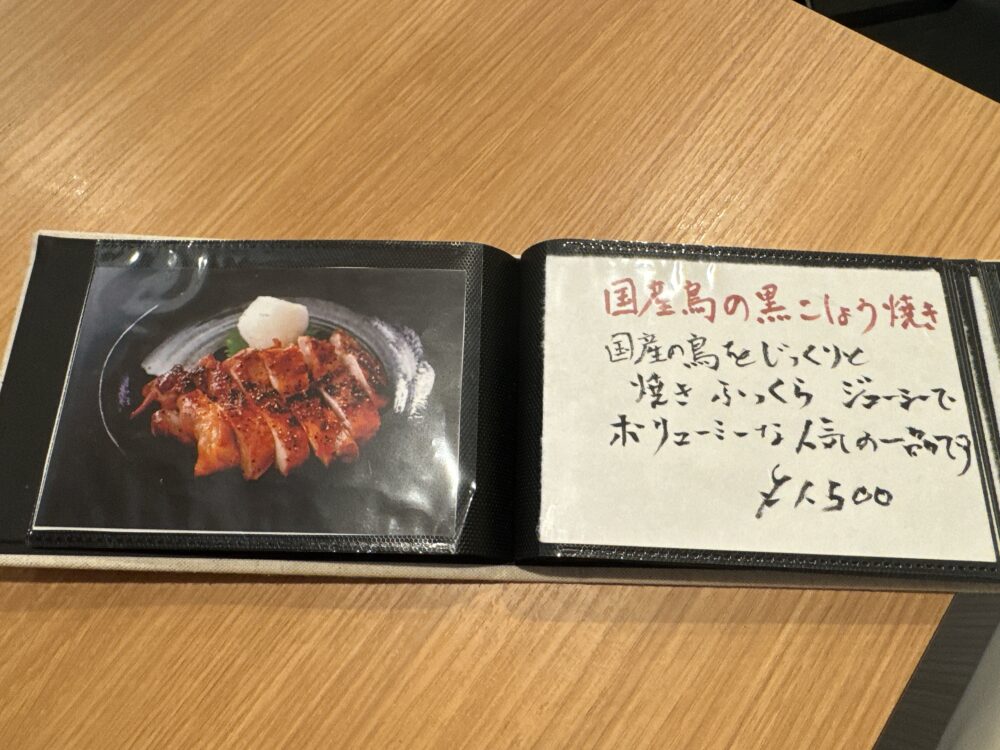 国産鳥の黒こしょう焼き
国産の鳥をじっくりと
焼き ふっくら ジューシーで
ボリューミーな人気の一品です
¥1,500